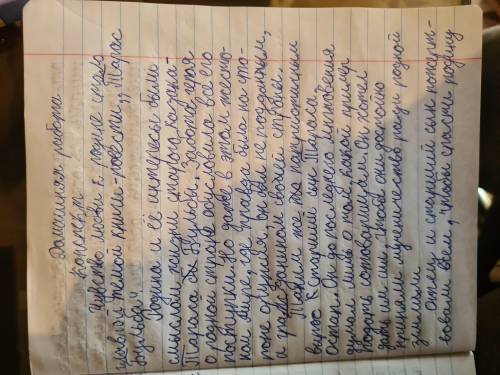 Домашняя работа
Конспект
Чувство любви к родине стало
главной темой книги-повести „Тарас
Бульба"
Родина и её интересы были
смыслом жизни старого казака-
Тараса Бульбы. Забота
о родной стране обуславила все его
поступки. Но даже в этом жесто-
ком мире, где правда была на сто-
роне других он был не подданным,
а гражданином своей страны.
Таким
вырос и старший сын Тараса
Остап. Он до последнего мгновения
думал лишь о том какой пример
подать отоварищам. Он хотел
дать им сил чтобы они достойно
приняли мученичество ради родной
земли
Отец и старший сын пожерт-
вовали всем, чтобы спасти родину